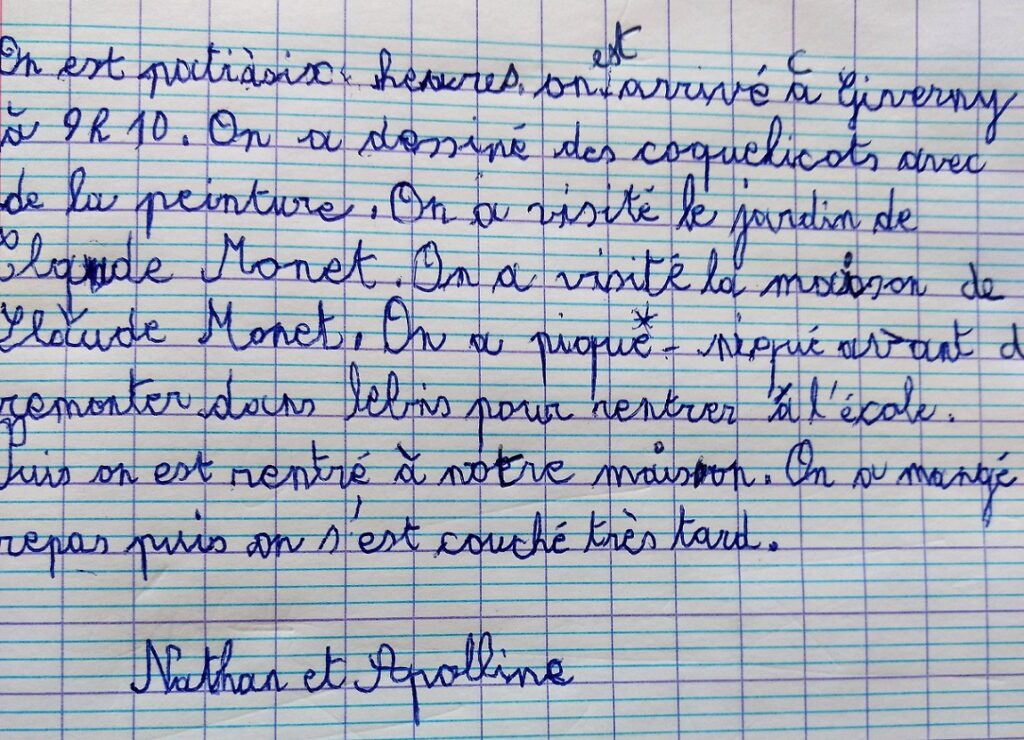 On est patiàsix heures, on est arrivé à Giverny
à 9h10. On a dessiné des coquelicots avec
de la peinture. On a visité le jardin de
Claude Monet. On a visité la maison de
Claude Monet. On a pique*-niqué avant d
remonter dans lebus pour rentrer à l'école.
Puis on est rentré à notre maison. On a mangé
repas puis on s'est couché très tard.
Nathan et Apolline